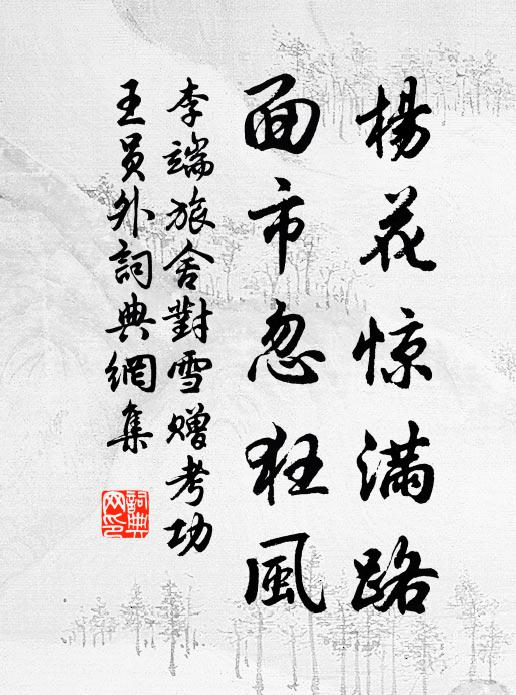 楊花惊滿路
面市忽狂風
李端旅舍對雪赠考功
王員外詞典網集
詞典网印